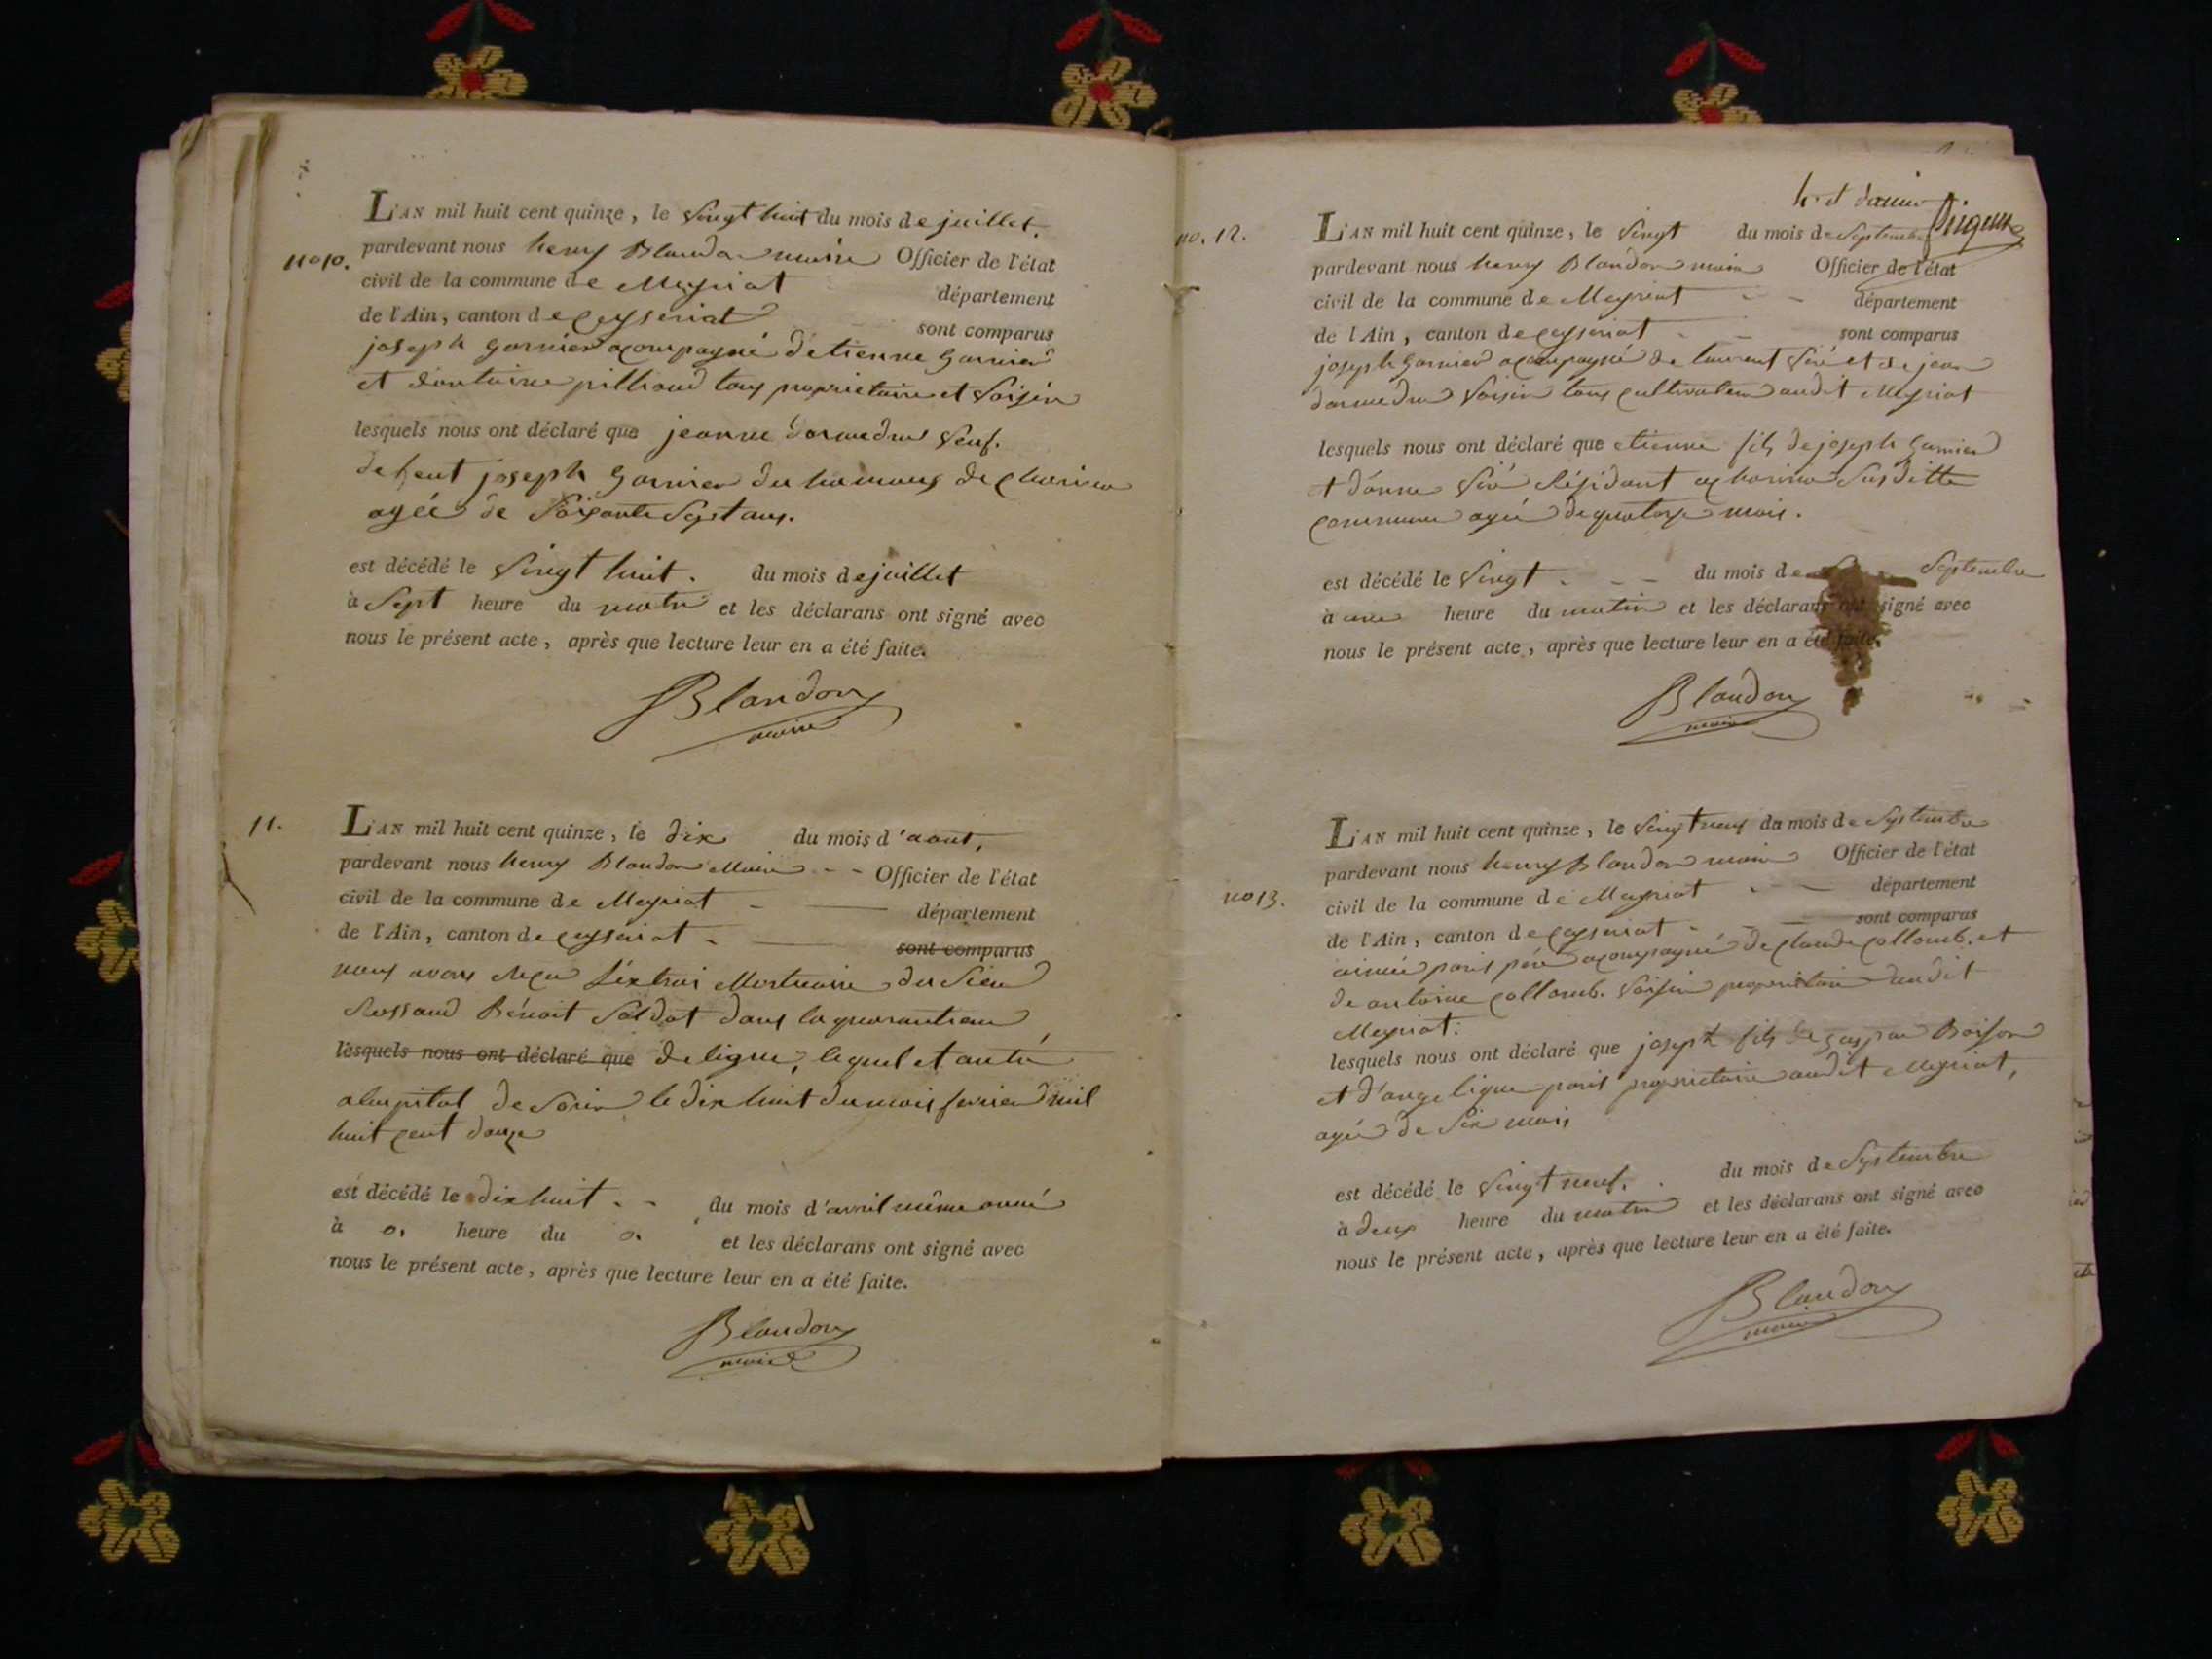 no 10.
L'AN mil huit cent quinze, le vingt huit du mois de juillet.
pardevant nous henry Blandon maire Officier de l'état
civil de la commune de Meyriat département
de l'Ain, canton de ceyseriat sont comparus
joseph Garnier acompagné d'etienne Garnier
et d'antoine pillioud tous proprietaire et voisin
lesquels nous ont déclaré que jeanne darmedru veuf.
de feut joseph Garnier du hameaux de
agée de soixante sept ans.
est décédé le vingt huit. du mois de juillet
à sept heure du matin et les déclarans ont signé avec
nous le présent acte, après que lecture leur en a été faite.
Blandon
maire
11.
L'AN mil huit cent quinze, le dix du mois d'aout,
pardevant nous henry Blandon Maire Officier de l'état
civil de la commune de Meyriat département
de l'Ain, canton de ceyseriat sont comparus
nous avons reçu l'extrai Mortuaire du sieur
Rossand Bénoit Soldat dans la quarantieme
lesquels nous ont déclaré que de ligne, lequel et antré
a lhopital de le dix huit du mois fevrier mil
huit cent douze
est décédé le dix huit du mois d'avril même anné
à o. heure du o. et les déclarans ont signé avec
nous le présent acte, après que lecture leur en a été faite.
Blandon
maire
no. 12.
L'AN mil huit cent quinze, le vingt du mois de Septembre
pardevant nous henry Blandon maire Officier de l'état
civil de la commune de Meyriat département
de l'Ain, canton de ceyseriat sont comparus
joseph Garnier acompagné de laurent et de jean
darmedru voisin tous cultivateur audit Meyriat
lesquels nous ont déclaré que etienne fils de joseph Garnier
et d'anne résidant a susditte
commune agée de quatorze mois.
est décédé le vingt du mois de Septembre
à une heure du matin et les déclarans ont signé avec
nous le présent acte, après que lecture leur en a été faite.
Blandon
maire
no 13.
L'AN mil huit cent quinze, le vingt neuf du mois de Septembre
pardevant nous henry Blandon maire Officier de l'état
civil de la commune de Meyriat département
de l'Ain, canton de ceyseriat sont comparus
aimée parit père acompagné de claude collomb. et
de antoine collomb. voisin proprietaire audit
Meyriat:
lesquels nous ont déclaré que joseph fils de gaspar Boison
et d'angelique parit proprietaire audit Meyriat,
agée de six mois
est décédé le vingt neuf. du mois de Septembre
à deux heure du matin et les déclarans ont signé avec
nous le présent acte, après que lecture leur en a été faite.
Blandon
maire